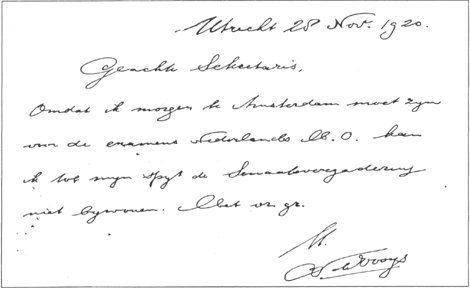 Utrecht 28 Nov. 1920.
Geachte Secretaris,
Omdat ik morgen te Amsterdam moet zyn
voor de examens Nederlands M.O. kan
ik tot myn spyt de Senaatsvergadering
niet bywonen. Met vr. gr.
de Vooys